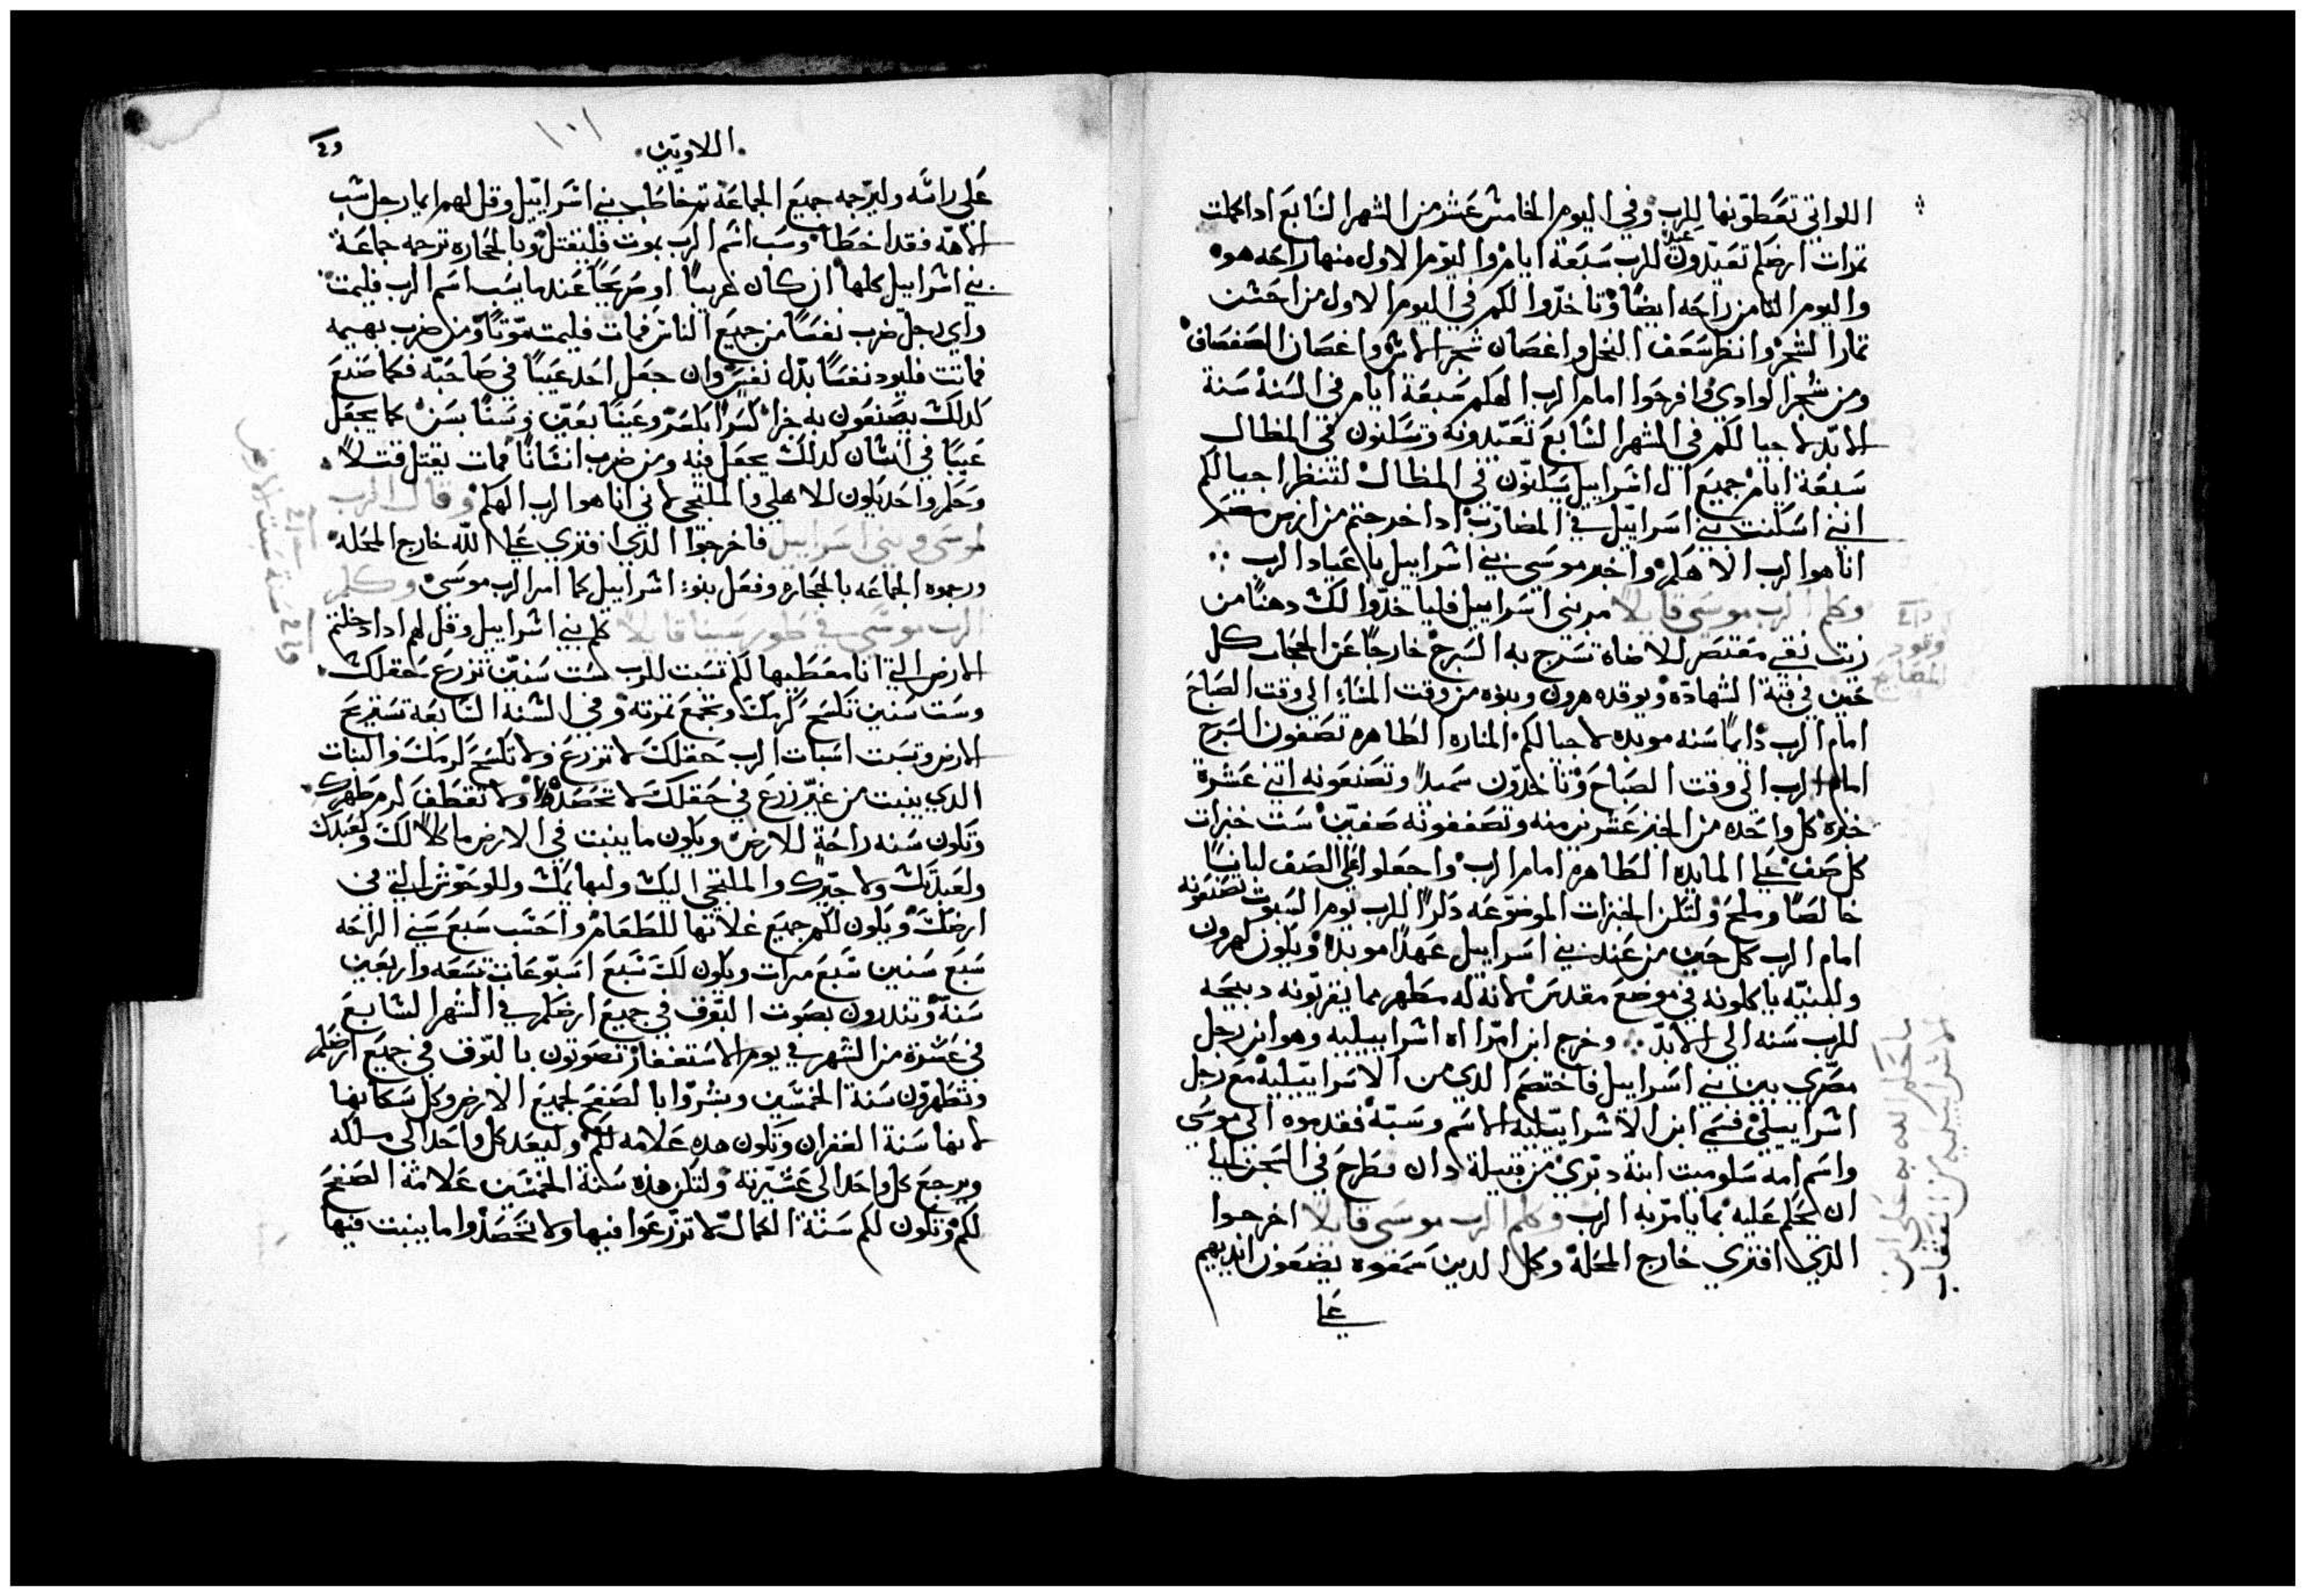 اللواتي تعطونها للرب وفي اليوم الخامس عشر من الشهر السابع ادا كملت
تمرات ارضكم تعيدون عيد للرب سبعة ايام واليوم الاول منها راحه هو
واليوم الثامن راحه ايضا وتاخدوا لكم في اليوم الاول من احسن
تمار الشجر وانظر سعف النخل واغصان شجر الاس واغصان الصفصاف
ومن شجر الوادي وافرحوا امام الرب الهكم سبعة ايام في السنة سنة
الابد لاجيالكم في الشهر السابع تعيدونه وتسكنون في المظال
سبعة ايام جميع ال اسراييل يسكنون في المظال لتنظر اجيالكم
انني اسكنت بني اسراييل في المضارب ادا خرجتم من ارض مصر
انا هو الرب الاهكم واخبر موسى بني اسراييل باعياد الرب
وكلم الرب موسى قايلا مر بني اسراييل فلياخدوا لك دهنا من
زيت نقي معتصر للاضاه تسرج به السرج خارجا عن الحجاب كل
حين في قبة الشهادة ويوقده هرون وبنوه من وقت المساء الى وقت الصباح
امام الرب دايما سنه موبده لاجيالكم المناره الطاهره تصفون السرج
امام الرب الى وقت الصباح وتاخدون سميدا وتصنعونه اتني عشرة
خبزة كل واحده من الخبز عشرين منه وتصففونه صفين ست خبزات
كل صف على المايده الطاهره امام الرب واجعلوا على الصف لبانا
خالصا وملح ولتكن الخبزات الموضوعه دكرا للرب يوم السبوت تصنعونه
امام الرب كل حين من عند بني اسراييل عهدا موبدا ويكون لهرون
ولبنيه ياكلونه في موضع مقدس لانه له مطهر مما يقربونه دبيحه
للرب سنه الى الابد وخرج ابن امراه اسراييليه وهو ابن رجل
مصري بين بني اسراييل فاختصم الدي من الاسراييليه مع رجل
اسراييلي فسمى ابن الاسراييليه الاسم وسبه فقدموه الى موسى
واسم امه سلوميت ابنة دبري من قبيلة دان فطرح في السجن الى
ان يحكم عليه بما يامر به الرب وكلم الرب موسى قايلا اخرجوا
الدي افترى خارج المحلة وكل الدين سمعوه يضعون ايديهم
على
وقود
المصابيح
اللاويين
١٠١
على راسه وليرجمه جميع الجماعة تم خاطب بني اسراييل وقل لهم ايما رجل سب
الاهه فقد اخطا وسب اسم الرب بموت فليقتل وبالحجاره ترجمه جماعة
بني اسراييل كلها ان كان غريبا او صريحا عند ما يسب اسم الرب فليمت
واي رجل ضرب نفسا من جميع الناس فمات فليمت موتا ومن ضرب بهيمه
فماتت فليود نفسا بدل نفس وان جعل احد عيبا في صاحبه فكما صنع
كدلك يصنعون به جزا كسرا بكسر وعينا بعين وسنا بسن كما يجعل
عيبا في انسان كدلك يجعل فيه ومن ضرب انسانا فمات يقتل قتلا
وحكم واحد يكون للاهلي والملتجي لاني انا هو الرب الهكم وقال الرب
لموسى وبني اسراييل فاخرجوا الدي افترى على الله خارج المحله
ورجموه الجماعه بالحجاره وفعل بنو اسراييل كما امر الرب موسى وكلم
الرب موسى في طور سينا قايلا كلم بني اسراييل وقل لهم ادا دخلتم
الارض التي انا معطيها لكم تسبت للرب ست سنين تزرع حقلك
وست سنين تكسح كرمك وتجمع تمرته وفي السنه السابعه تستريح
الارض وتسبت اسبات الرب حقلك لا تزرع ولا تكسح كرمك والنبات
الدي ينبت من غير زرع في حقلك لا تحصده ولا تقطف كرم طهرك
وتكون سنه راحة للارض ويكون ما ينبت في الارض ماكلا لك ولعبدك
ولعبدتك ولاجيرك والملتجي اليك ولبهايمك وللوحوش التي في
ارضك ويكون لكم جميع غلاتها للطعام واحسب سبع سني الراحه
سبع سنين سبع مرات ويكون لك سبع اسبوعات تسعه واربعين
سنة وتندرون بصوت البوق في جميع ارضكم في الشهر السابع
في عشرة من الشهر في يوم الاستغفار تصوتون بالبوق في جميع ارضكم
وتطهرون سنة الخمسين وبشروا بالصفح لجميع الارض وكل سكانها
لانها سنة الغفران وتكون هده علامه لكم وليعد كل واحد الى مسلكه
ويرجع كل واحد الى عشيرته ولتكن هذه سنة الخمسين علامة الصفح
لكم وتكون لكم سنة الكمال لا تزرعوا فيها ولا تحصدوا ما ينبت فيها